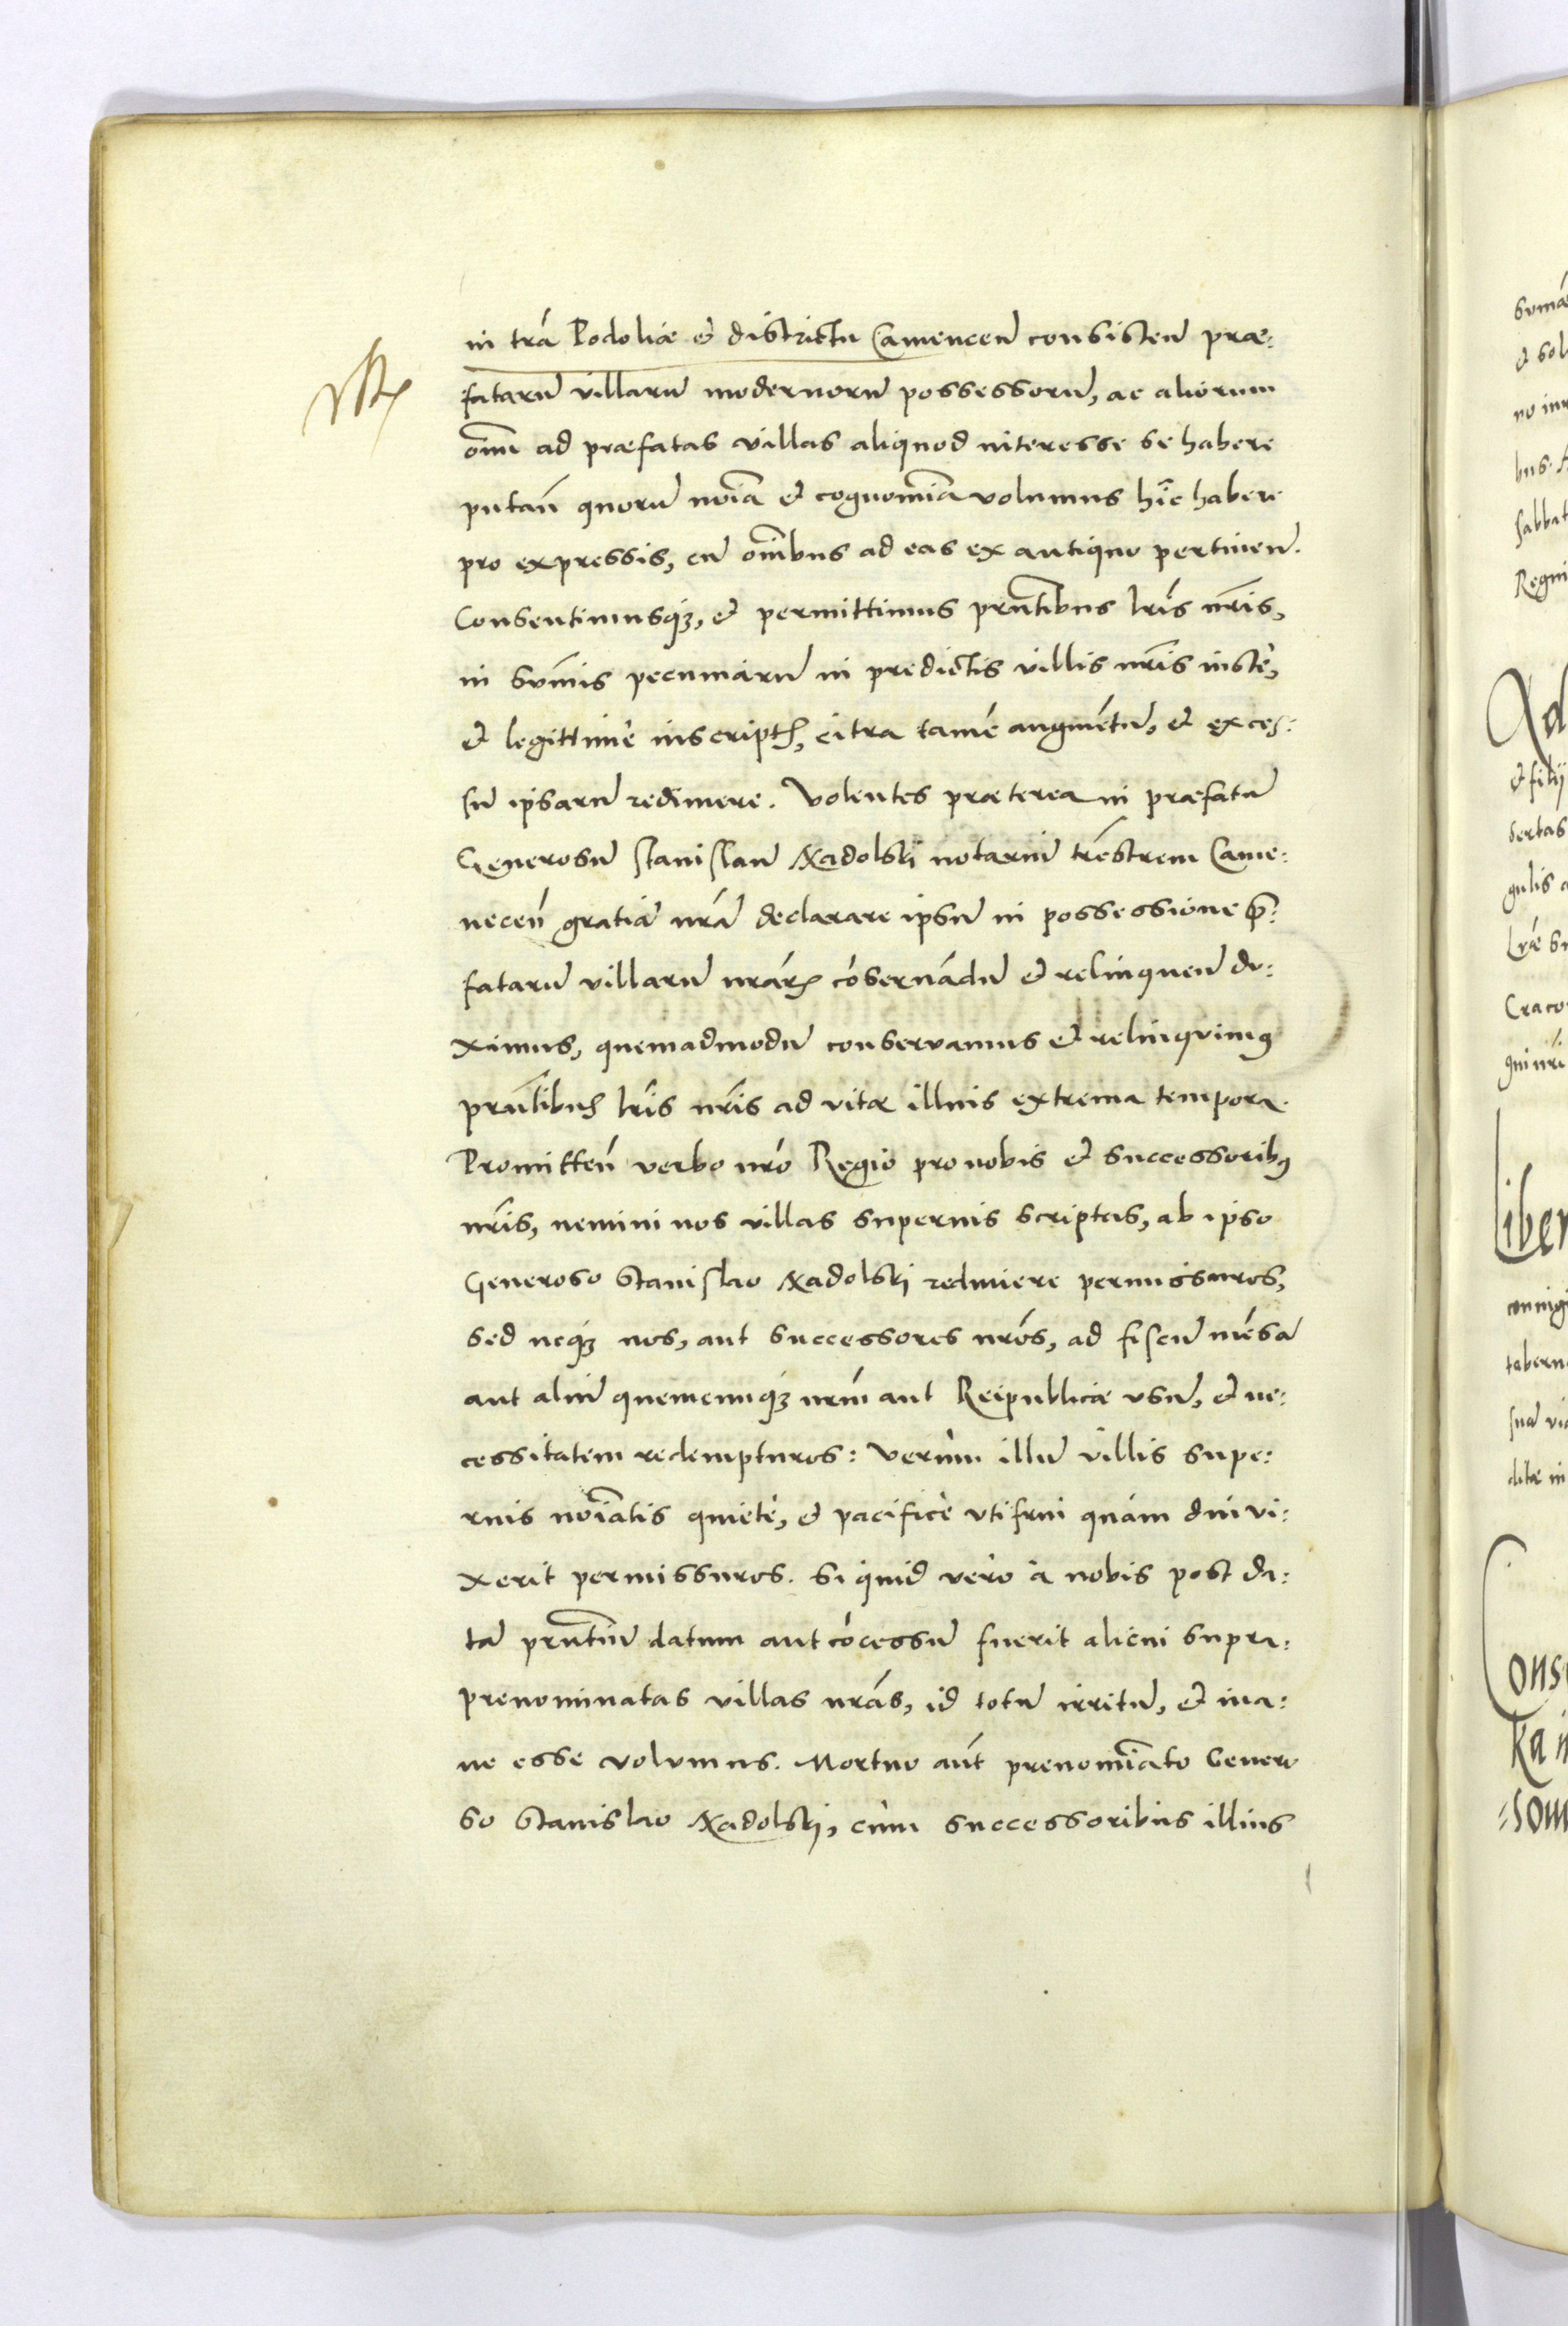 in trã Podoliæ et districtu Camenceñ consisteñ præ:
fatarũ villarũ modernorũ possessorũ, ac aliorum
oĩm ad præfatas villas aliquod interesse se habere
putañ quorũ noĩa et cognomĩa volumus hic habere
pro expressis, cũ oĩnibus ad eas ex antiquo pertineñ.
Consentimusqꝫ, et permittimus prñtibus lr̃is nr̃is,
in sum̃is pecuniarũ in predictis villis nr̃is iustè,
et legittimè inscriptꝭ, citra tamẽ augmẽtũ, et exces:
sũ ipsarũ redimere. Volentes præterea in præfatũ
Generosũ Stanislaũ Xadolski notariũ trẽstrem Came:
neceñ gratiã nrã declarare ipsũ in possessione p̃:
fatarũ villarũ nrãrꝝ cõseruãdũ et relinqueñ du:
ximus, quemadmodũ conservamus et relinquimꝰ
prñtibuꝫ lr̃is nr̃is ad vitæ illius extrema tempora.
Promitteñ verbo nrõ Regio pro nobis et successoribꝰ
nr̃is, nemini nos villas superius scriptas, ab ipso
Generoso Stanislao Xadolskj redimere permissuros,
sed neqꝫ nos, aut successores nrõs, ad fiscũ mẽsã
aut aliũ quemcunqꝫ nrm̃ aut Reipublicæ vsũ, et ne:
cessitatem redempturos: Verùm illũ villis supe:
rius noĩatis quietè, et pacificè vti frui quàm diu vi:
xerit permissuros. Si quid verò à nobis post da:
tã prñtiũ datum aut cõcessũ fuerit alicui supra:
prenominatas villas nrãs, id totũ irritũ, et ina:
ne esse volumus. Mortuo aũt prenomĩato Genero
so Stanislao Xadolskj, cùm successoribus illius